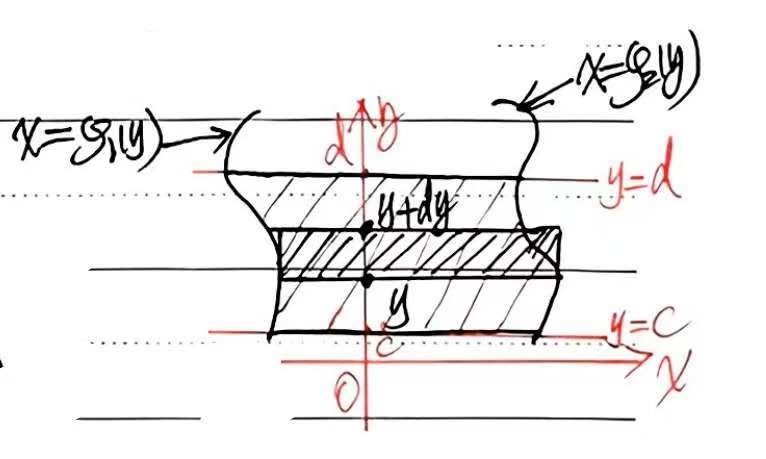 x=φ₂(y)
x=φ₁(y)
y
d
y=d
y+dy
y
y=c
c
x
O